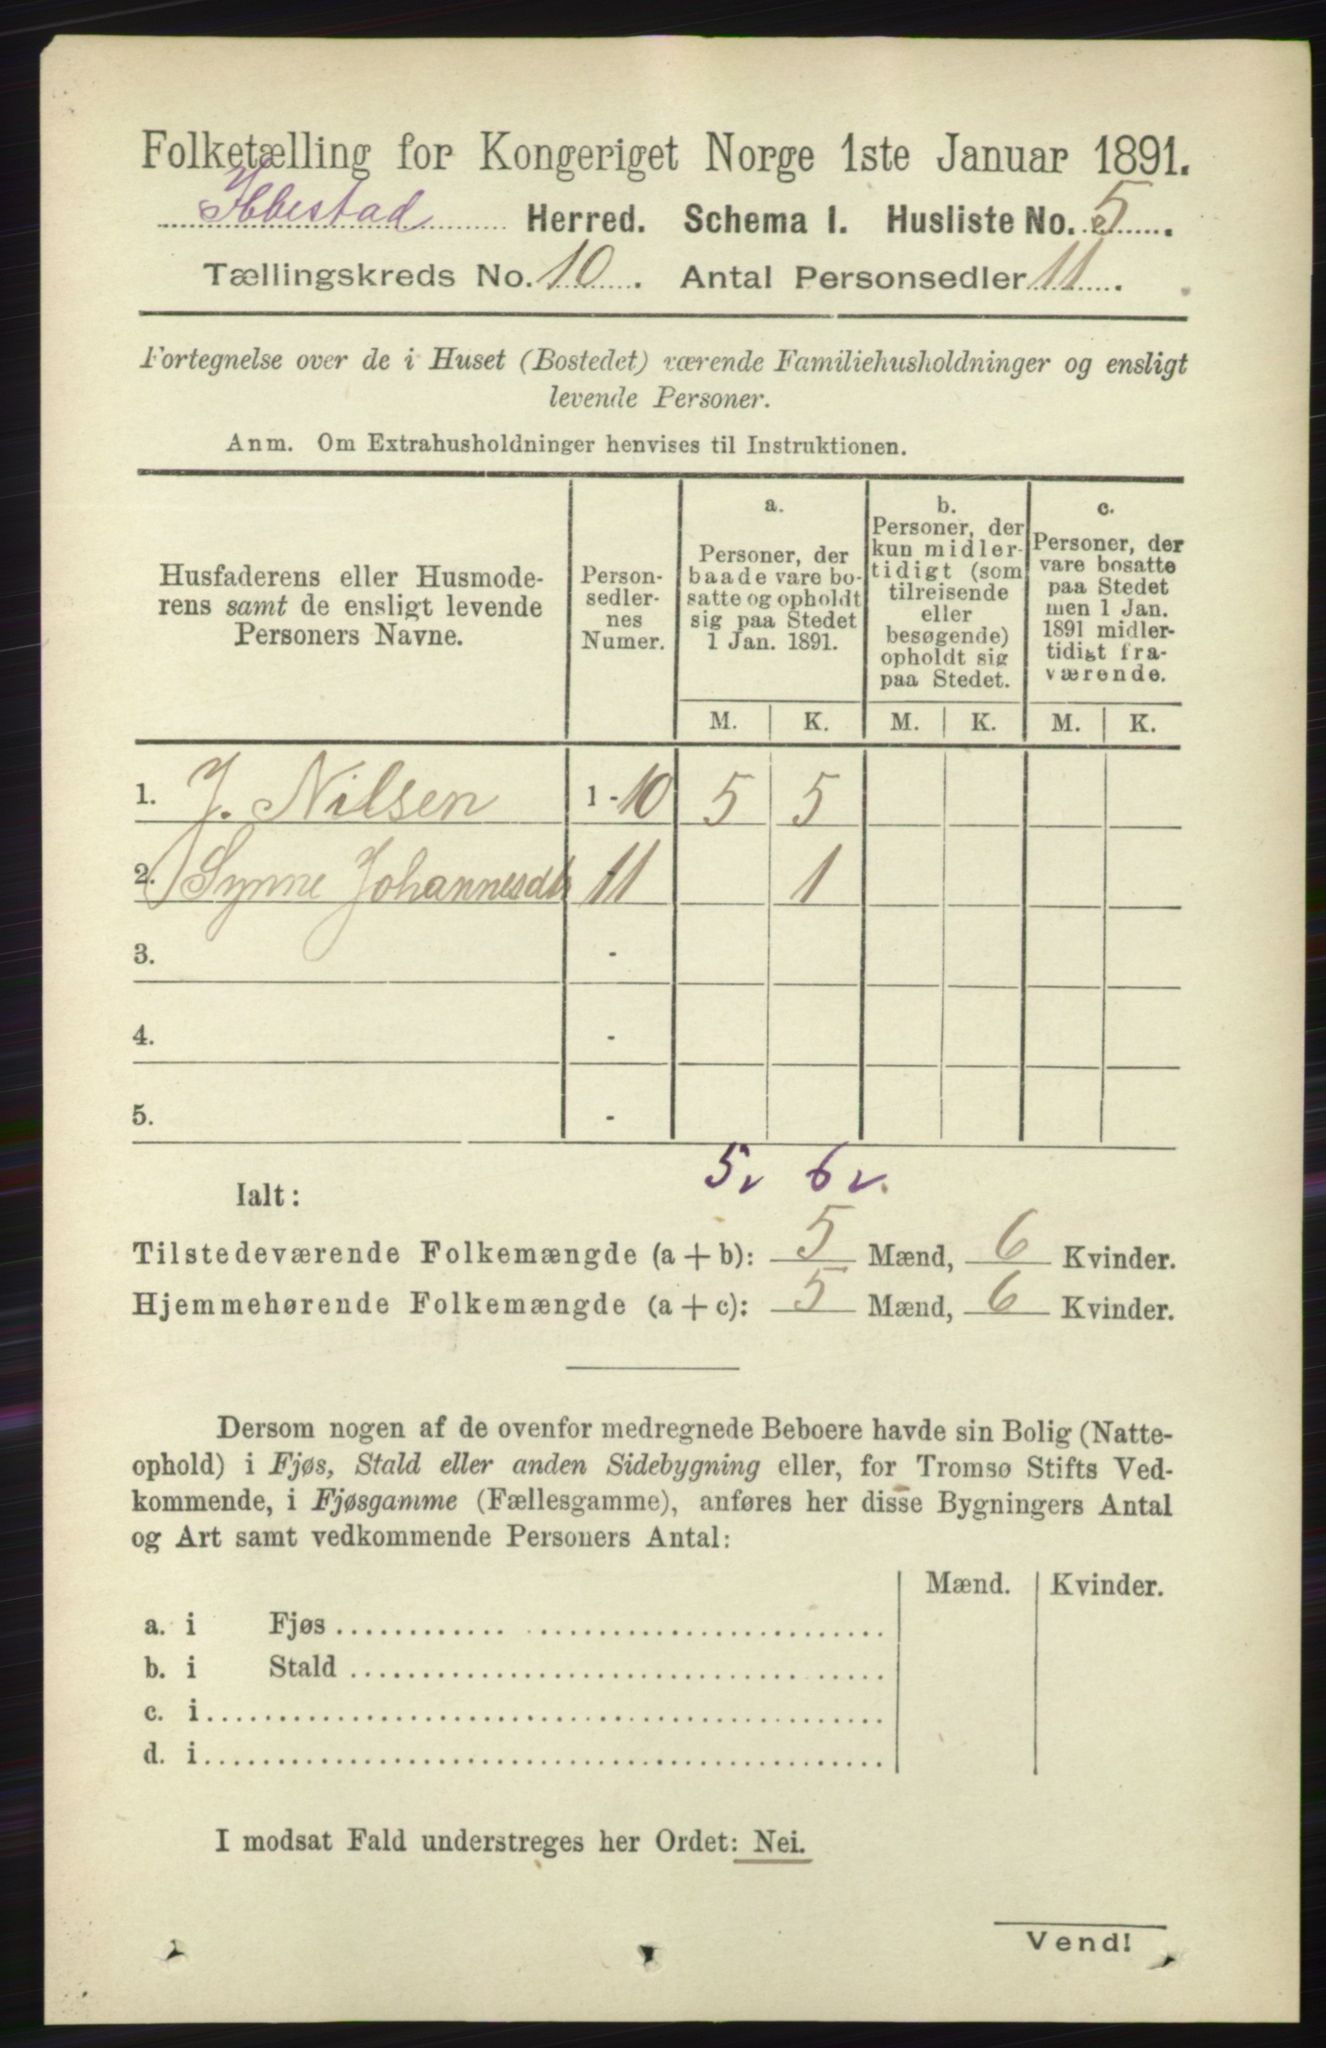 Folketælling for Kongeriget Norge 1ste Januar 1891.
Ibbestad Herred. Schema I. Husliste No. 5.
Tællingskreds No. 10. Antal Personsedler 11.
Fortegnelse over de i Huset (Bostedet) værende Familiehusholdninger og ensligt
levende Personer.
Anm. Om Extrahusholdninger henvises til Instruktionen.
Husfaderens eller Husmode-
rens samt de ensligt levende
Personers Navne.
Person-
sedler-
nes
Numer.
a.
Personer, der
baade vare bo-
satte og opholdt
sig paa Stedet
1 Jan. 1891.
b.
Personer, der
kun midler-
tidigt (som
tilreisende
eller
besøgende)
opholdt sig
paa Stedet.
c.
Personer, der
vare bosatte
paa Stedet
men 1 Jan.
1891 midler-
tidigt fra-
værende.
M. K. M. K. M. K.
1. J. Nilsen 1-10 5 5
2. Synne Johannesdtr 11 1
3. -
4. -
5. -
5v 6v.
Ialt:
Tilstedeværende Folkemængde (a + b): 5 Mænd, 6 Kvinder.
Hjemmehørende Folkemængde (a + c): 5 Mænd, 6 Kvinder.
Dersom nogen af de ovenfor medregnede Beboere havde sin Bolig (Natte-
ophold) i Fjøs, Stald eller anden Sidebygning eller, for Tromsø Stifts Ved-
kommende, i Fjøsgamme (Fællesgamme), anføres her disse Bygningers Antal
og Art samt vedkommende Personers Antal:
Mænd. Kvinder.
a. i Fjøs
b. i Stald
c. i
d. i
I modsat Fald understreges her Ordet: Nei.
Vend!